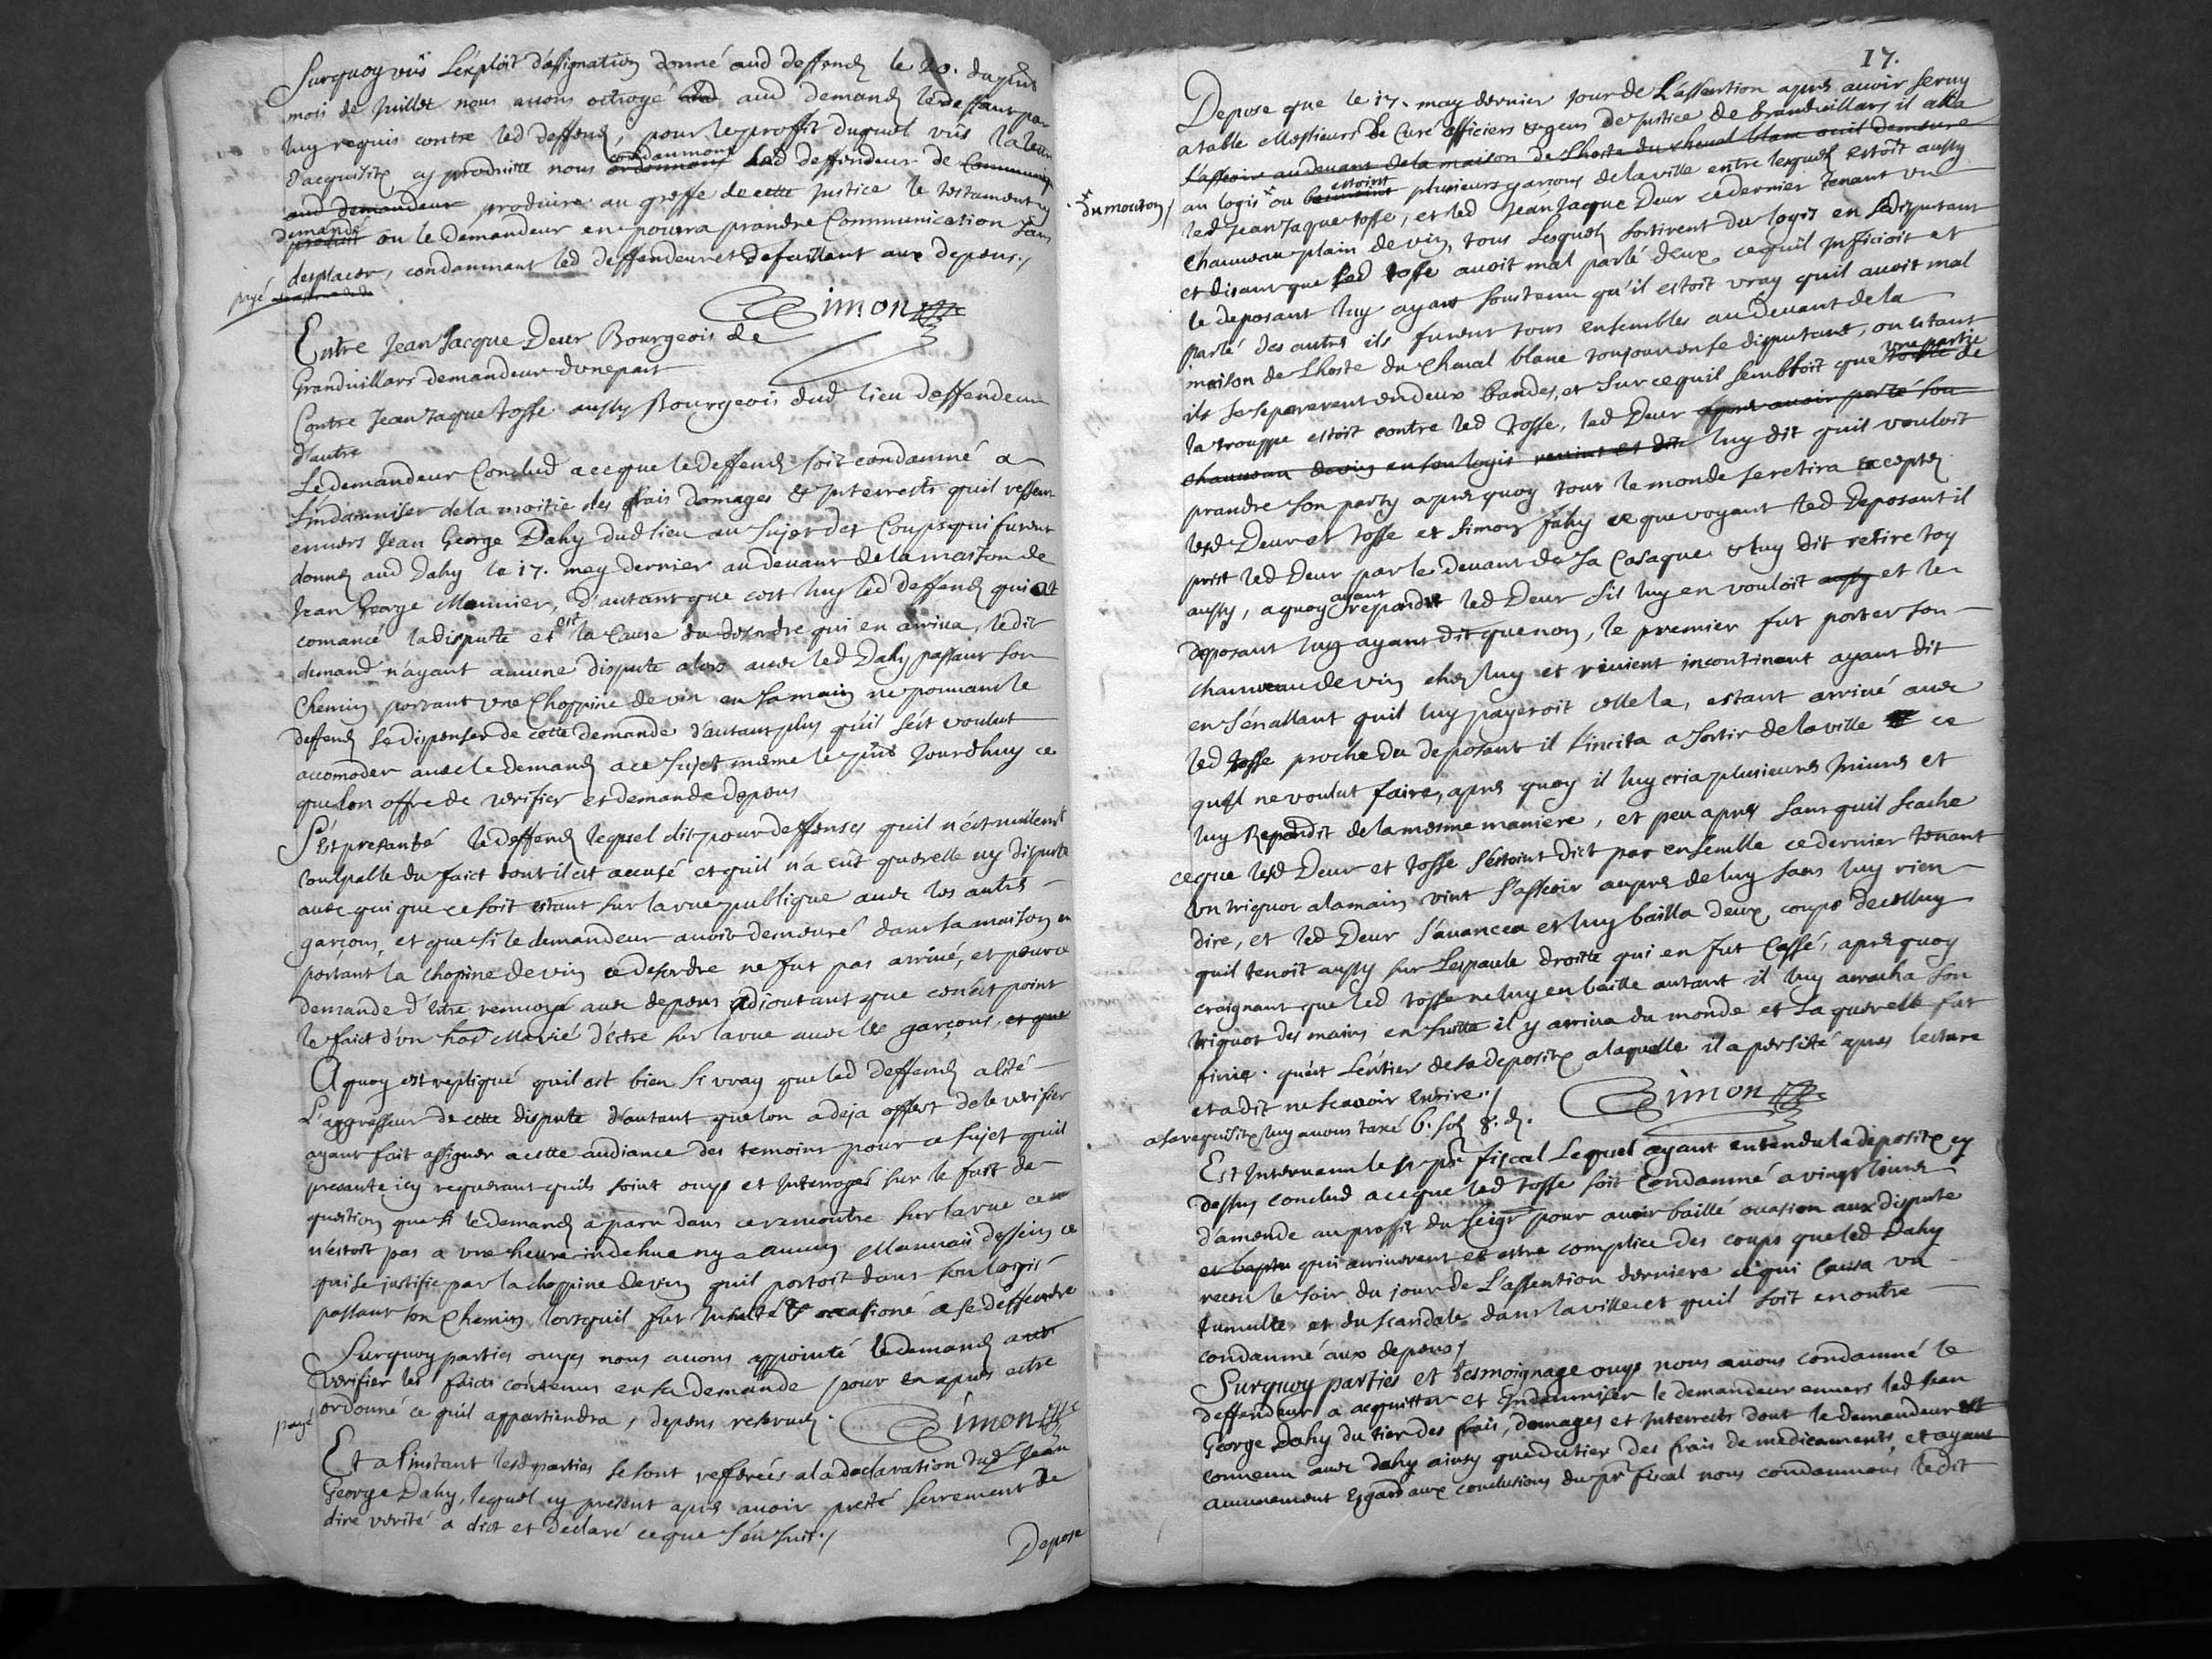 Surquoy vüs L'exploit d'assignation donné aud deffend le 20. du pnt
mois de Juillet nous avons octroyé aud demand le deffaut par
luy requis contre led deffend, pour le profit duquel vüs la lettre
d'acquisition cy produitte nous condamnons led deffendeur de
produire au greffe de cette Justice le testament y
demandé ou le demandeur en pourra prandre Communication sans
desplacer, condamnant led deffendeur et defaillant aux depens./
payé
Simon
Entre Jean Jacque Deur Bourgeois de
Grandvillars demandeur d'une part
Contre Jean Jaque tosse aussy Bourgeois dud lieu deffendeur
d'autre
Le demandeur Conclud a ce que le deffend soit condamné a
l'indamniser de la moitié des frais domages & Interrests quil
envers Jean George Dahy dud lieu au sujet des Coups qui furent
donnés aud Dahy le 17. may dernier au devant de la maison de
Jean George Monnier, d'autant que c'est luy led deffend qui at
comancé la dispute et est la Cause du desordre qui en arriva, ledit
demand n'ayant aucune dispute alors avec led Dahy passant son
Chemin portant une Choppine de vin en sa main ne pouvant le
deffend se dispenser de cette demande d'autant plus quil s'est voulut
accomoder avec le demand a ce sujet même le pnt Jourdhuy ce
que lon offre de verifier et demande depens
S'est presanté le deffend lequel dit pour deffenses quil n'est nullemt
coulpable du faict dont il est accusé et quil n'a eüt querelle ny dispute
avec qui que ce soit estant sur la rue publique avec les autres
garçons, et que si le demandeur avoit demeuré dans sa maison en
portant la chopine de vin ce desordre ne fut pas arrivé, et pour ce
demande d'estre renvoyé avec depens adioutant que ce n'est point
le faict d'un hoe Marié d'estre sur la rue avec les garçons, et que
A quoy est repliqué quil est bien si vray que led deffend a esté
L'aggresseur de cette dispute d'autant que lon a deja offert de le verifier
ayant fait assigner a cette audiance des temoins pour ce sujet quil
presante icy requerant quils soint ouys et Interrogés sur le fait de
question que si le demand a paru dans ce rencontre sur la rue ce
n'estoit pas a une heure indehue ny a aucun Mauvais dessein ce
qui se justifie par la choppine de vin quil portoit dans son logis
passant son Chemin lorsquil fut Insulté & occasioné a se deffendre
Surquoy parties ouyes nous avons appointé le demand a
verifier les faicts contenus en sa demande pour en apres estre
ordonné ce quil appartiendra, depens reservés.
payé
Simon
Et a l'instant lesd parties se sont refferées a la declaration dud Jean
George Dahy, lequel cy present apres avoir presté serrement de
dire verité a dict et declaré ce que s'ensuit./
Depose
17.
Depose que le 17. may dernier jour de L'assention apres avoir servy
a table Messieurs le Curé officiers & gens de Justice de Grandvillars il alla
s'asseoir au devant de la maison de Lhoste du cheval blanc ou il demeure
* du mouton/
au logis * ou estoint plusieurs garçons de la ville entre lesquels estoit aussy
led Jean Jaque tosse, et led Jean Jaque Deur ce dernier tenant un
chauveau plain de vin, tous lesquels sortirent du logis en se disputant
et disant que led tosse avoit mal parlé d'eux, ce quil Inficioit et
le deposant luy ayant soustenu qu'il estoit vray quil avoit mal
parlé des autres ils furent tous ensembles au devant de la
maison de Lhoste du Cheval blanc toujour en se disputant, ou estant
ils se separerent en deux bandes, et sur ce quil sembloit que une partie de
la trouppe estoit contre led tosse, led Deur apres avoir porté son
chauveau de vin en son logis revint et dit luy dit quil vouloit
prandre son party apres quoy tout le monde se retira exceptés
lesd Deur et tosse et Simon fahy ce que voyant led Deposant il
prit led Deur par le devant de sa Casaque & luy dit retire toy
aussy, a quoy ayant repondu led Deur s'il luy en vouloit aussy et le
deposant luy ayant dit que non, le premier fut porter son
chauveau de vin chez luy et revient incontinent ayant dit
en s'en allant quil luy payeroit celle la, estant arrivé avec
led tosse proche du deposant il l'incita a sortir de la ville ce
quil ne voulut faire, apres quoy il luy cria plusieurs Iniures et
luy Repondit de la mesme maniere, et peu apres sans quil scache
ce que lesd Deur et tosse s'estoint dict par ensemble ce dernier tenant
un triquot a la main vint s'asseoir aupres de luy sans luy rien
dire, et led Deur s'avancea et luy bailla deux coups de celluy
quil tenoit aussy sur Lespaule droitte qui en fut Cassé, apres quoy
craignant que led tosse ne luy en baille autant il luy arracha son
triquot des mains en suitte il y arriva du monde et la querelle fut
finie. qu'est L'entier de sa deposition a laquelle il a persisté apres lecture
et a dit ne scavoir Escrire./
Simon
a sa requisition luy avons taxé 6. sols 8. d.
Est Intervenu le sr pr fiscal Lequel ayant entendu la deposition cy
dessus conclud a ce que led tosse soit Condamné a vingt livres
d'amende au proffit du seigr pour avoir baillé occasion aux dispute
qui arriverent et estre complice des coups que led Dahy
receu le soir du jour de L'assention derniere ce qui Causa un
tumulte et du scandale dans la ville et quil soit en outre
condamné aux depens/
Surquoy parties et tesmoignage ouys nous avons condamné le
deffendeur a acquitter et Indamniser le demandeur envers led Jean
George Dahy du tier des frais, domages et Interrests dont le demandeur est
convenu avec dahy ainsy que du tier des frais de medicaments, et ayant
aucunement Egard aux conclusions du pr fiscal nous condamnons ledit